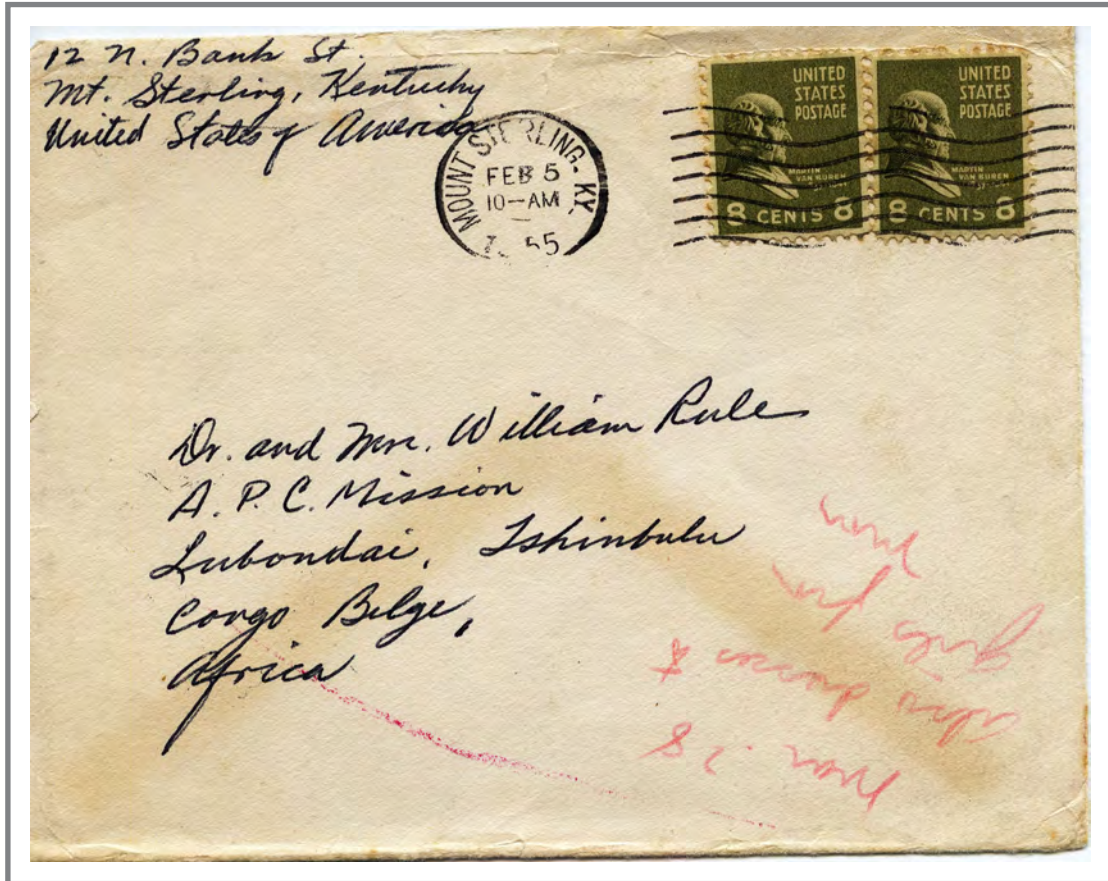 12 N. Bank St.
Mt. Sterling, Kentucky
United States of America
MOUNT STERLING-KY.
FEB 5
10-AM
55
UNITED
STATES
POSTAGE
MARTIN
VAN BUREN
8 CENTS 8
UNITED
STATES
POSTAGE
MARTIN
VAN BUREN
8 CENTS 8
Dr. and Mrs. William Rule
A. P. C. Mission
Lubondai, Tshinbulu
Congo Belge,
Africa
Mar. 28
girls from